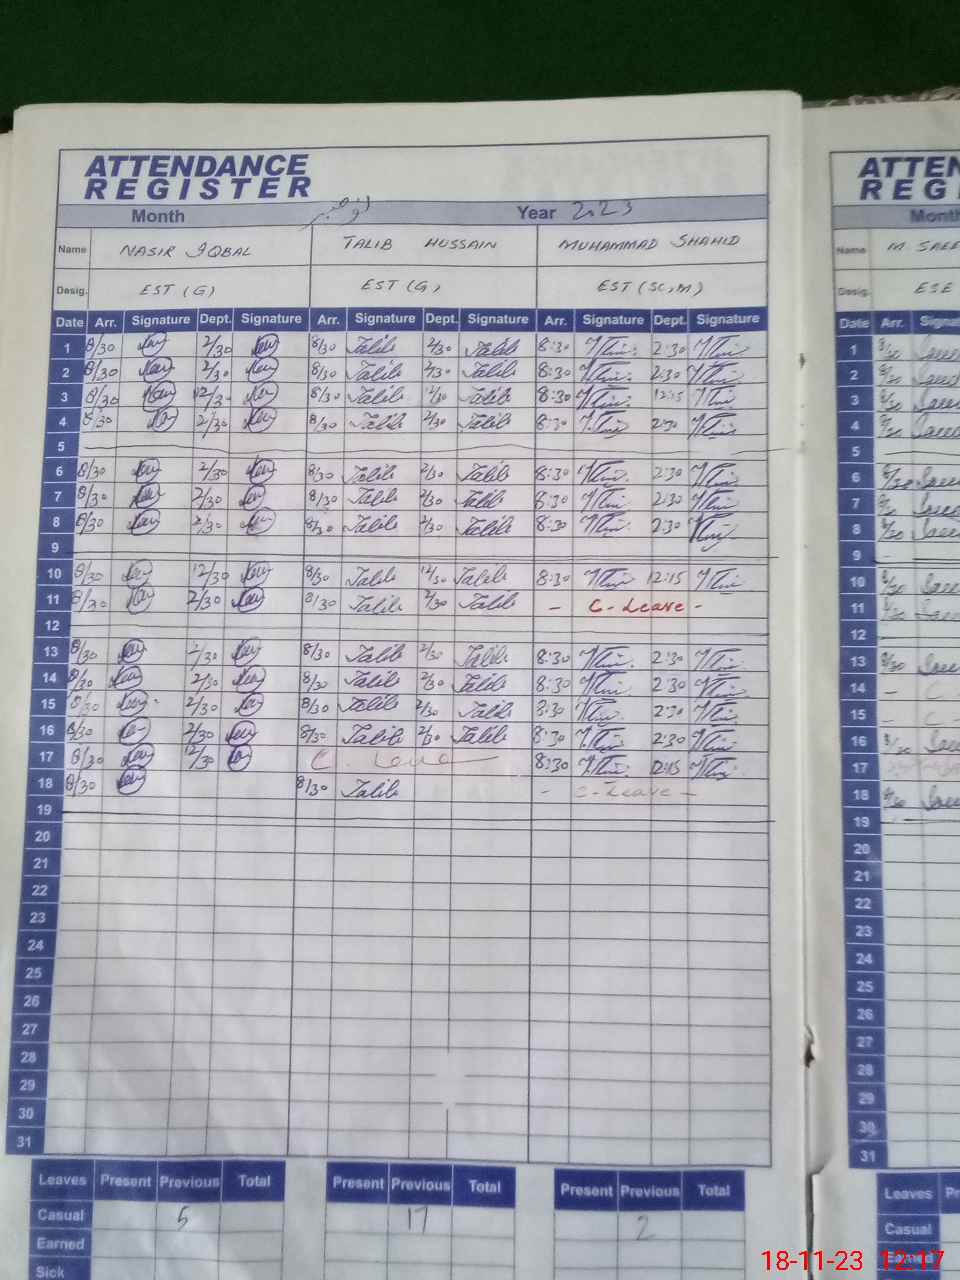 ATTENDANCE
REGISTER
Month نومبر Year 2023
Name NASIR IQBAL TALIB HUSSAIN MUHAMMAD SHAHID
Desig. EST (G) EST (G) EST (SC,M)
Date Arr. Signature Dept. Signature Arr. Signature Dept. Signature Arr. Signature Dept. Signature
1 8/30 2/30 8/30 Talib 2/30 Talib 8:30 2:30
2 8/30 2/30 8/30 Talib 2/30 Talib 8:30 2:30
3 8/30 12/3- 8/30 Talib 12/30 Talib 8:30 12:15
4 8/30 2/30 8/30 Talib 2/30 Talib 8:30 2:30
5
6 8/30 2/30 8/30 Talib 2/30 Talib 8:30 2:30
7 8/30 2/30 8/30 Talib 2/30 Talib 8:30 2:30
8 8/30 2/30 8/30 Talib 2/30 Talib 8:30 2:30
9
10 8/30 12/30 8/30 Talib 12/30 Talib 8:30 12:15
11 8/30 2/30 8/30 Talib 2/30 Talib - C-Leave -
12
13 8/30 2/30 8/30 Talib 2/30 Talib 8:30 2:30
14 8/30 2/30 8/30 Talib 2/30 Talib 8:30 2:30
15 8/30 2/30 8/30 Talib 2/30 Talib 8:30 2:30
16 8/30 2/30 8/30 Talib 2/30 Talib 8:30 2:30
17 8/30 12/30 C. Leave 8:30 12:15
18 8/30 8/30 Talib - C-Leave -
19
20
21
22
23
24
25
26
27
28
29
30
31
Leaves Present Previous Total Present Previous Total Present Previous Total
Casual 5 17 2
Earned
Sick
ATTEN
REG
Month
Name M SAEE
Desig. ESE
Date Arr. Signa
1 8/30 Saeed
2 8/30 Saeed
3 8/30 Saeed
4 8/30 Saeed
5
6 8/30 Saeed
7 8/30 Saeed
8 8/30 Saeed
9 -
10 8/30 Saeed
11 8/30 Saeed
12
13 8/30 Saee
14 - C
15 - C -
16 8/30 Saee
17
18 8/30 Saee
19
20
21
22
23
24
25
26
27
28
29
30
31
Leaves Pr
Casual
Earned
18-11-23 12:17